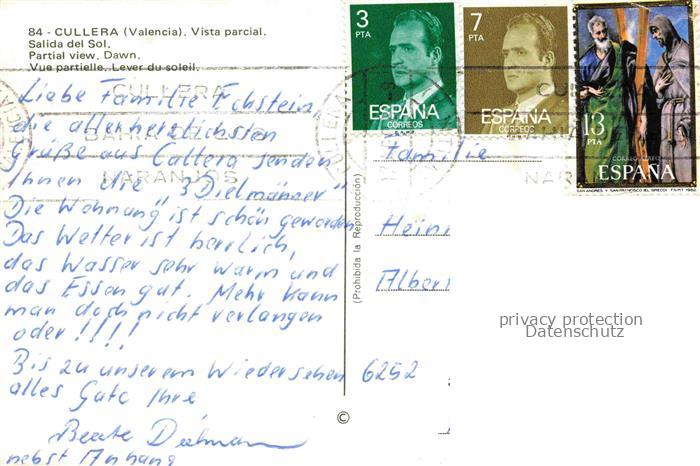 84 - CULLERA (Valencia). Vista parcial.
Salida del Sol.
Partial view. Dawn.
Vue partielle. Lever du soleil.
Liebe Familie Eckstein,
die allerherzlichsten
Grüße aus Cullera senden
Ihnen die "3 Dielmänner"
Die Wohnung ist schön geworden
Das Wetter ist herrlich,
das Wasser sehr warm und
das Essen gut. Mehr kann
man doch nicht verlangen
oder!!!!
Bis zu unserem Wiedersehen
alles Gute Ihre
Beate
nebst Anhang
CULLERA
NARANJOS
(Prohibida la Reproducción)
©
3
PTA
ESPAÑA
CORREOS
7
PTA
ESPAÑA
CORREOS
13
PTA
CORREO AEREO
ESPAÑA
SAN ANDRES Y SAN FRANCISCO (EL GRECO) F.N.M.T. 1982
Familie
Hein
Alber
6252
privacy protection
Datenschutz